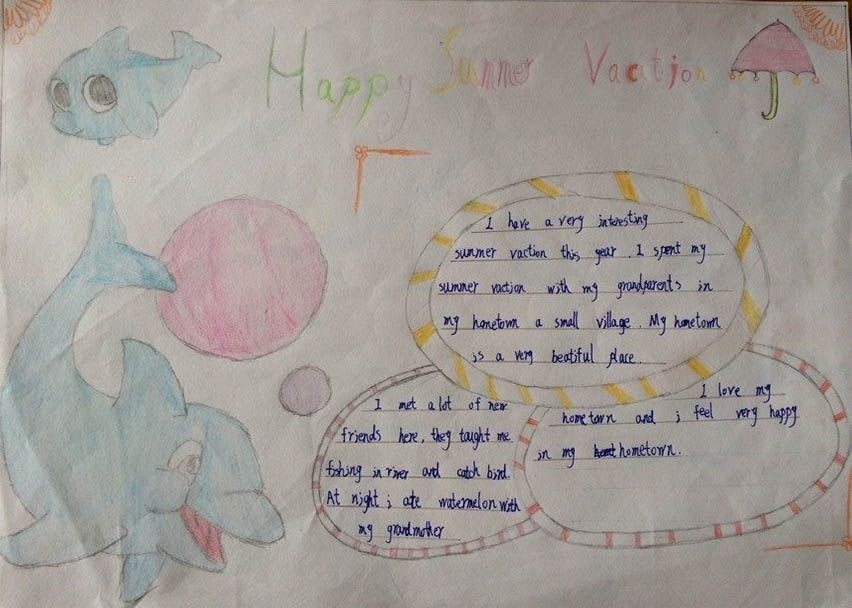 Happy Summer Vacation
I have a very interesting
summer vaction this year. I spent my
summer vaction with my grandparents in
my hometown a small village. My hometown
is a very beatiful place.
I met a lot of new
friends here, they taught me
fishing in river and catch bird.
At night i ate watermelon with
my grandmother
I love my
hometown and i feel very happy
in my hometown.